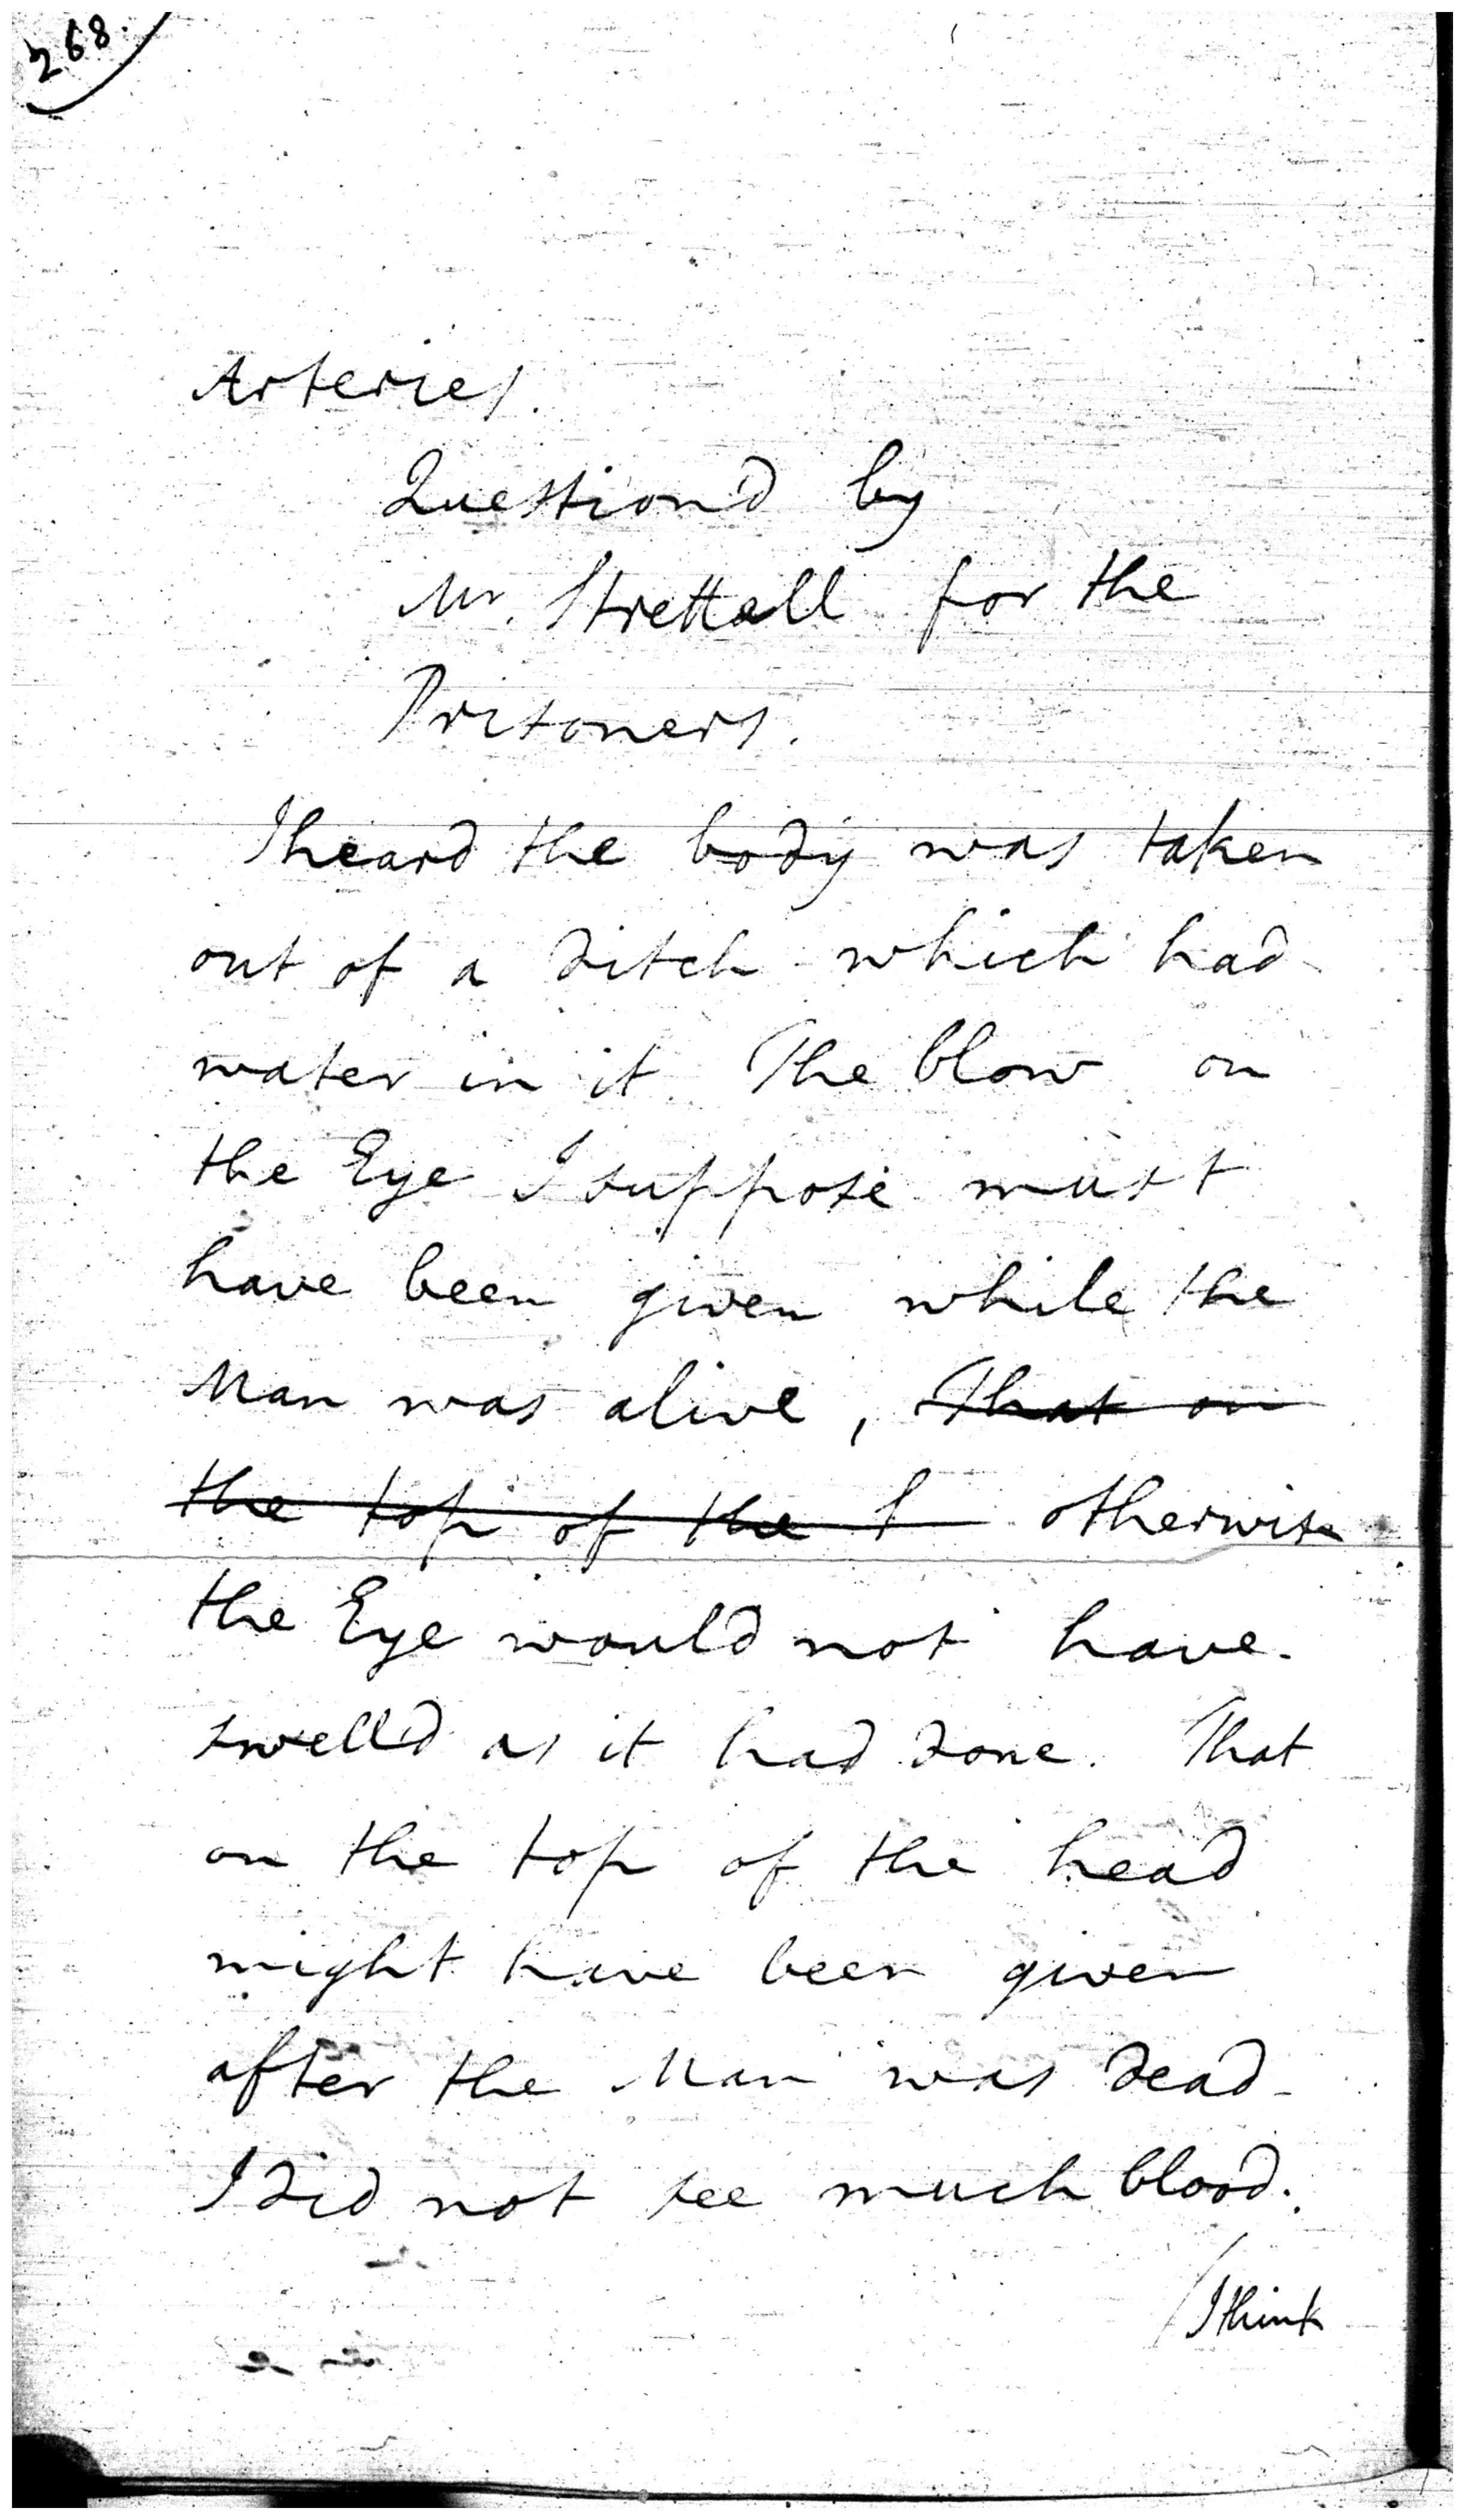 268.
Arteries.
Question'd by
Mr. Strettell for the
Prisoners.
I heard the body was taken
out of a ditch which had
water in it. The blow on
the Eye I suppose must
have been given while the
Man was alive, That on
the top of the h otherwise
the Eye would not have
swell'd as it had done. That
on the top of the head
might have been given
after the Man was dead
I did not see much blood.
/I think